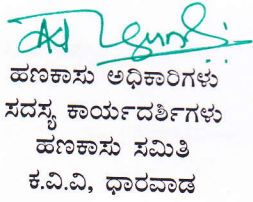 ಹಣಕಾಸು ಅಧಿಕಾರಿಗಳು
ಸದಸ್ಯ ಕಾರ್ಯದರ್ಶಿಗಳು
ಹಣಕಾಸು ಸಮಿತಿ
ಕ.ವಿ.ವಿ, ಧಾರವಾಡ